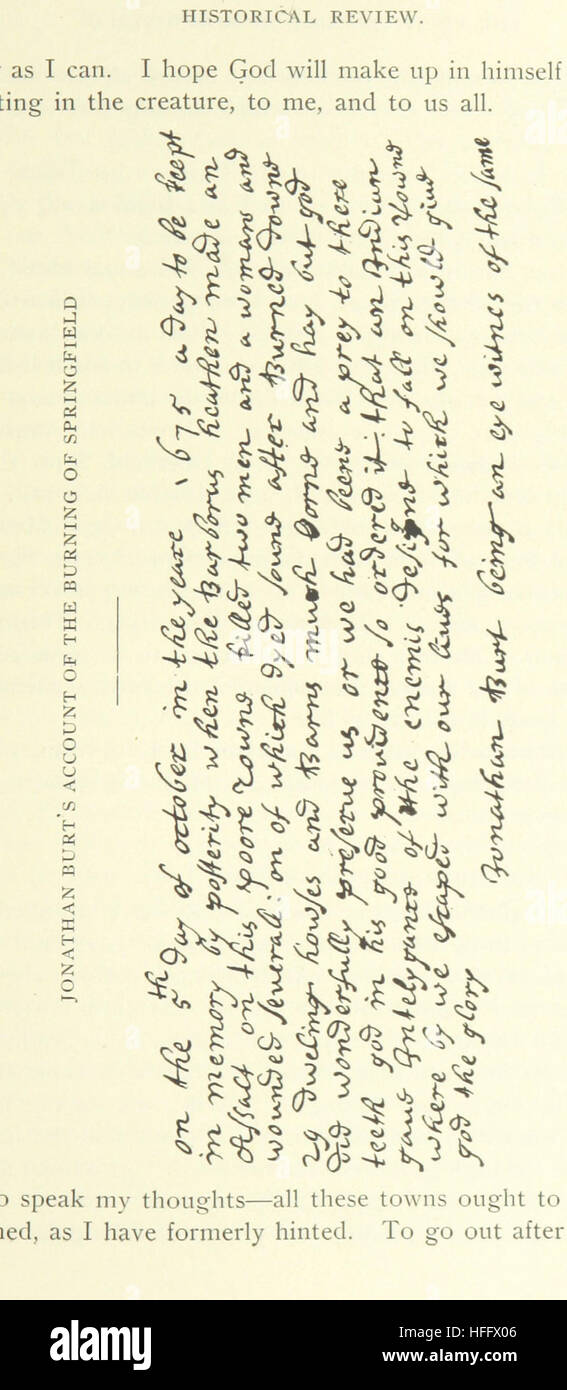 HISTORICAL REVIEW.
as I can. I hope God will make up in himself
ting in the creature, to me, and to us all.
JONATHAN BURT'S ACCOUNT OF THE BURNING OF SPRINGFIELD
on the 5th day of october in the yeare 1675 a day to be kept
in memory by posterity when the Barborus heathen made an
Assalt on this poore towne killed two men and a woman and
wounded severall: on of which dyed soune after Burned downe
29 dweling howses and Barns much Corne and hay but god
did wonderfully preserve us or we had beene a prey to there
teeth god in his good providence so ordered it that an Indian
gaue Intelygance of the enemis designe to fall on this towne
where by we escaped with our lives for which we should give
god the glory
Jonathan Burt being an eye witnes of the same
o speak my thoughts—all these towns ought to
ned, as I have formerly hinted. To go out after
alamy
alamy
Image ID: HFFX06
www.alamy.com